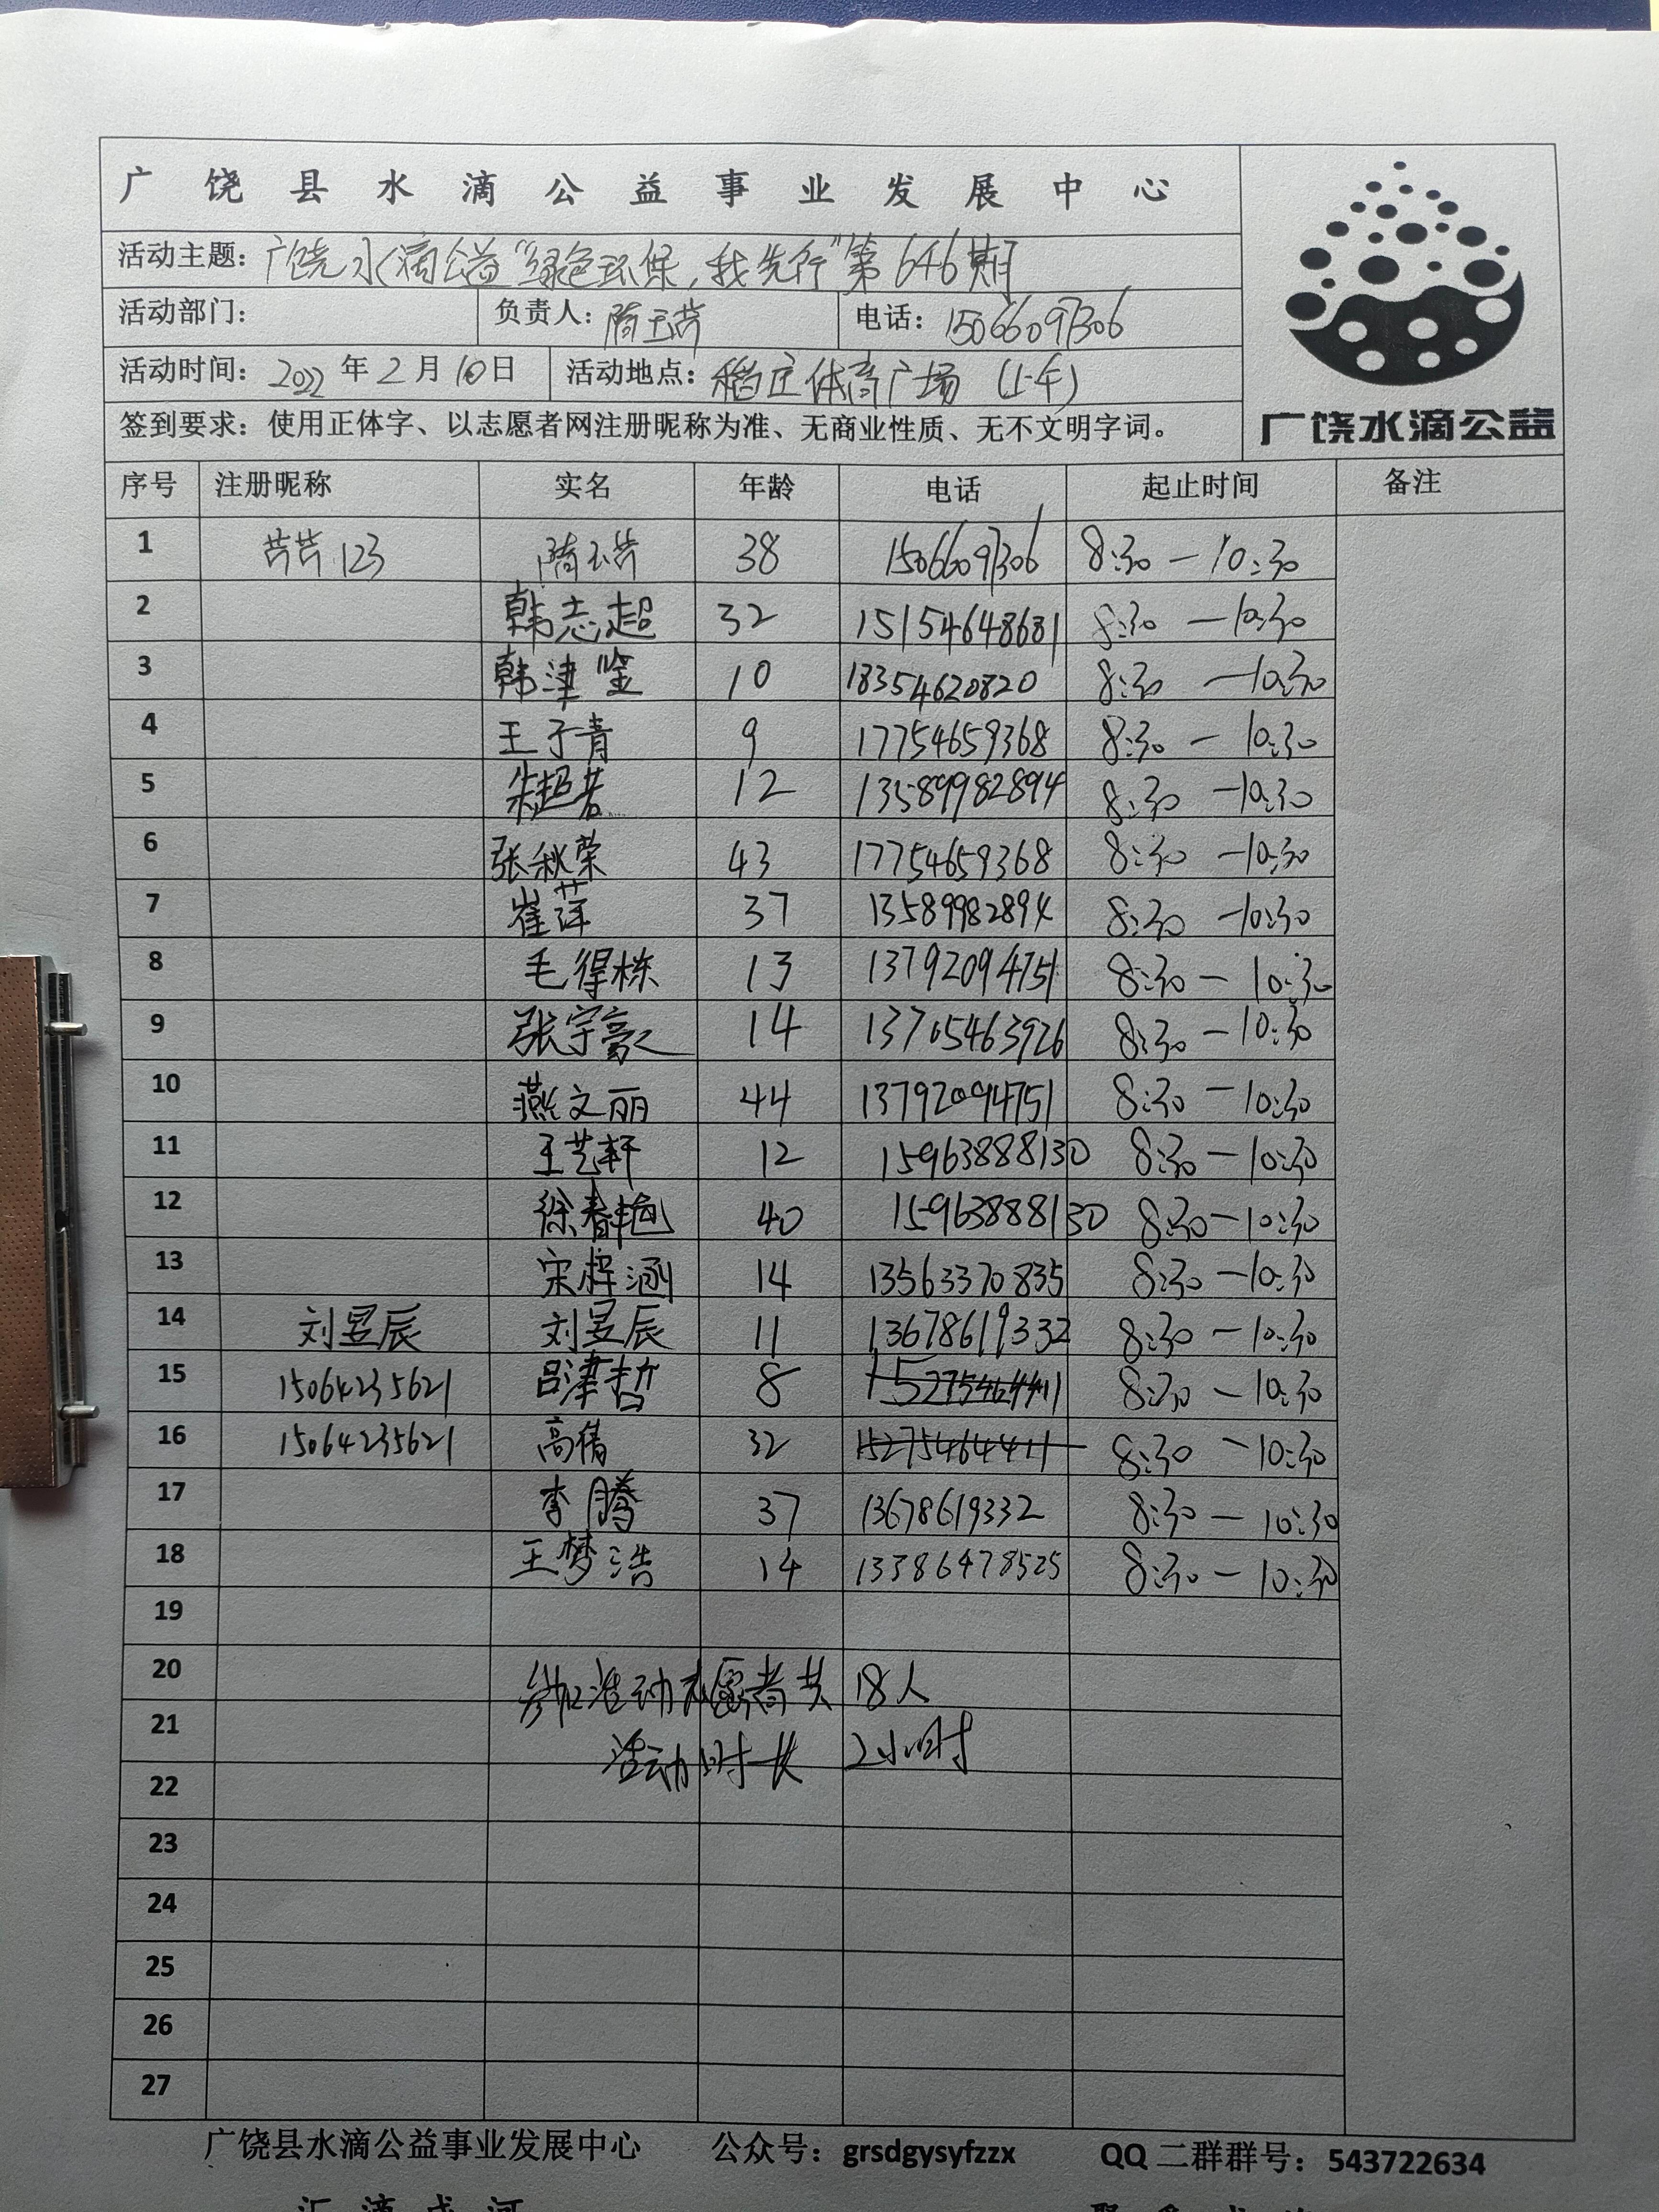 广饶县水滴公益事业发展中心
活动主题：广饶水滴公益“绿色环保，我先行”第646期
活动部门： 负责人：隋玉芹 电话：15066097306
活动时间：2022年2月10日 活动地点：稻庄体育广场（上午）
签到要求：使用正体字、以志愿者网注册昵称为准、无商业性质、无不文明字词。
广饶水滴公益
序号 注册昵称 实名 年龄 电话 起止时间 备注
1 芹芹123 隋玉芹 38 15066097306 8:30—10:30
2 韩志超 32 15154648681 8:30—10:30
3 韩津鉴 10 18354620820 8:30—10:30
4 王子青 9 17754659368 8:30—10:30
5 朱超 12 13589982894 8:30—10:30
6 张秋荣 43 17754659368 8:30—10:30
7 崔萍 37 13589982894 8:30—10:30
8 毛得栋 13 13792094751 8:30—10:30
9 张宇豪 14 13705463926 8:30—10:30
10 燕文丽 44 13792094751 8:30—10:30
11 王艺轩 12 15963888130 8:30—10:30
12 徐春艳 40 15963888130 8:30—10:30
13 宋梓涵 14 13563370835 8:30—10:30
14 刘昱辰 刘昱辰 11 13678619332 8:30—10:30
15 15064235621 吕津哲 8 15275464411 8:30—10:30
16 15064235621 高倩 32 15275464411 8:30—10:30
17 李腾 37 13678619332 8:30—10:30
18 王梦浩 14 13386478525 8:30—10:30
19
20 参加活动志愿者共18人
21 活动时长 2小时
22
23
24
25
26
27
广饶县水滴公益事业发展中心 公众号：grsdgysyfzzx QQ二群群号：543722634
汇滴成河